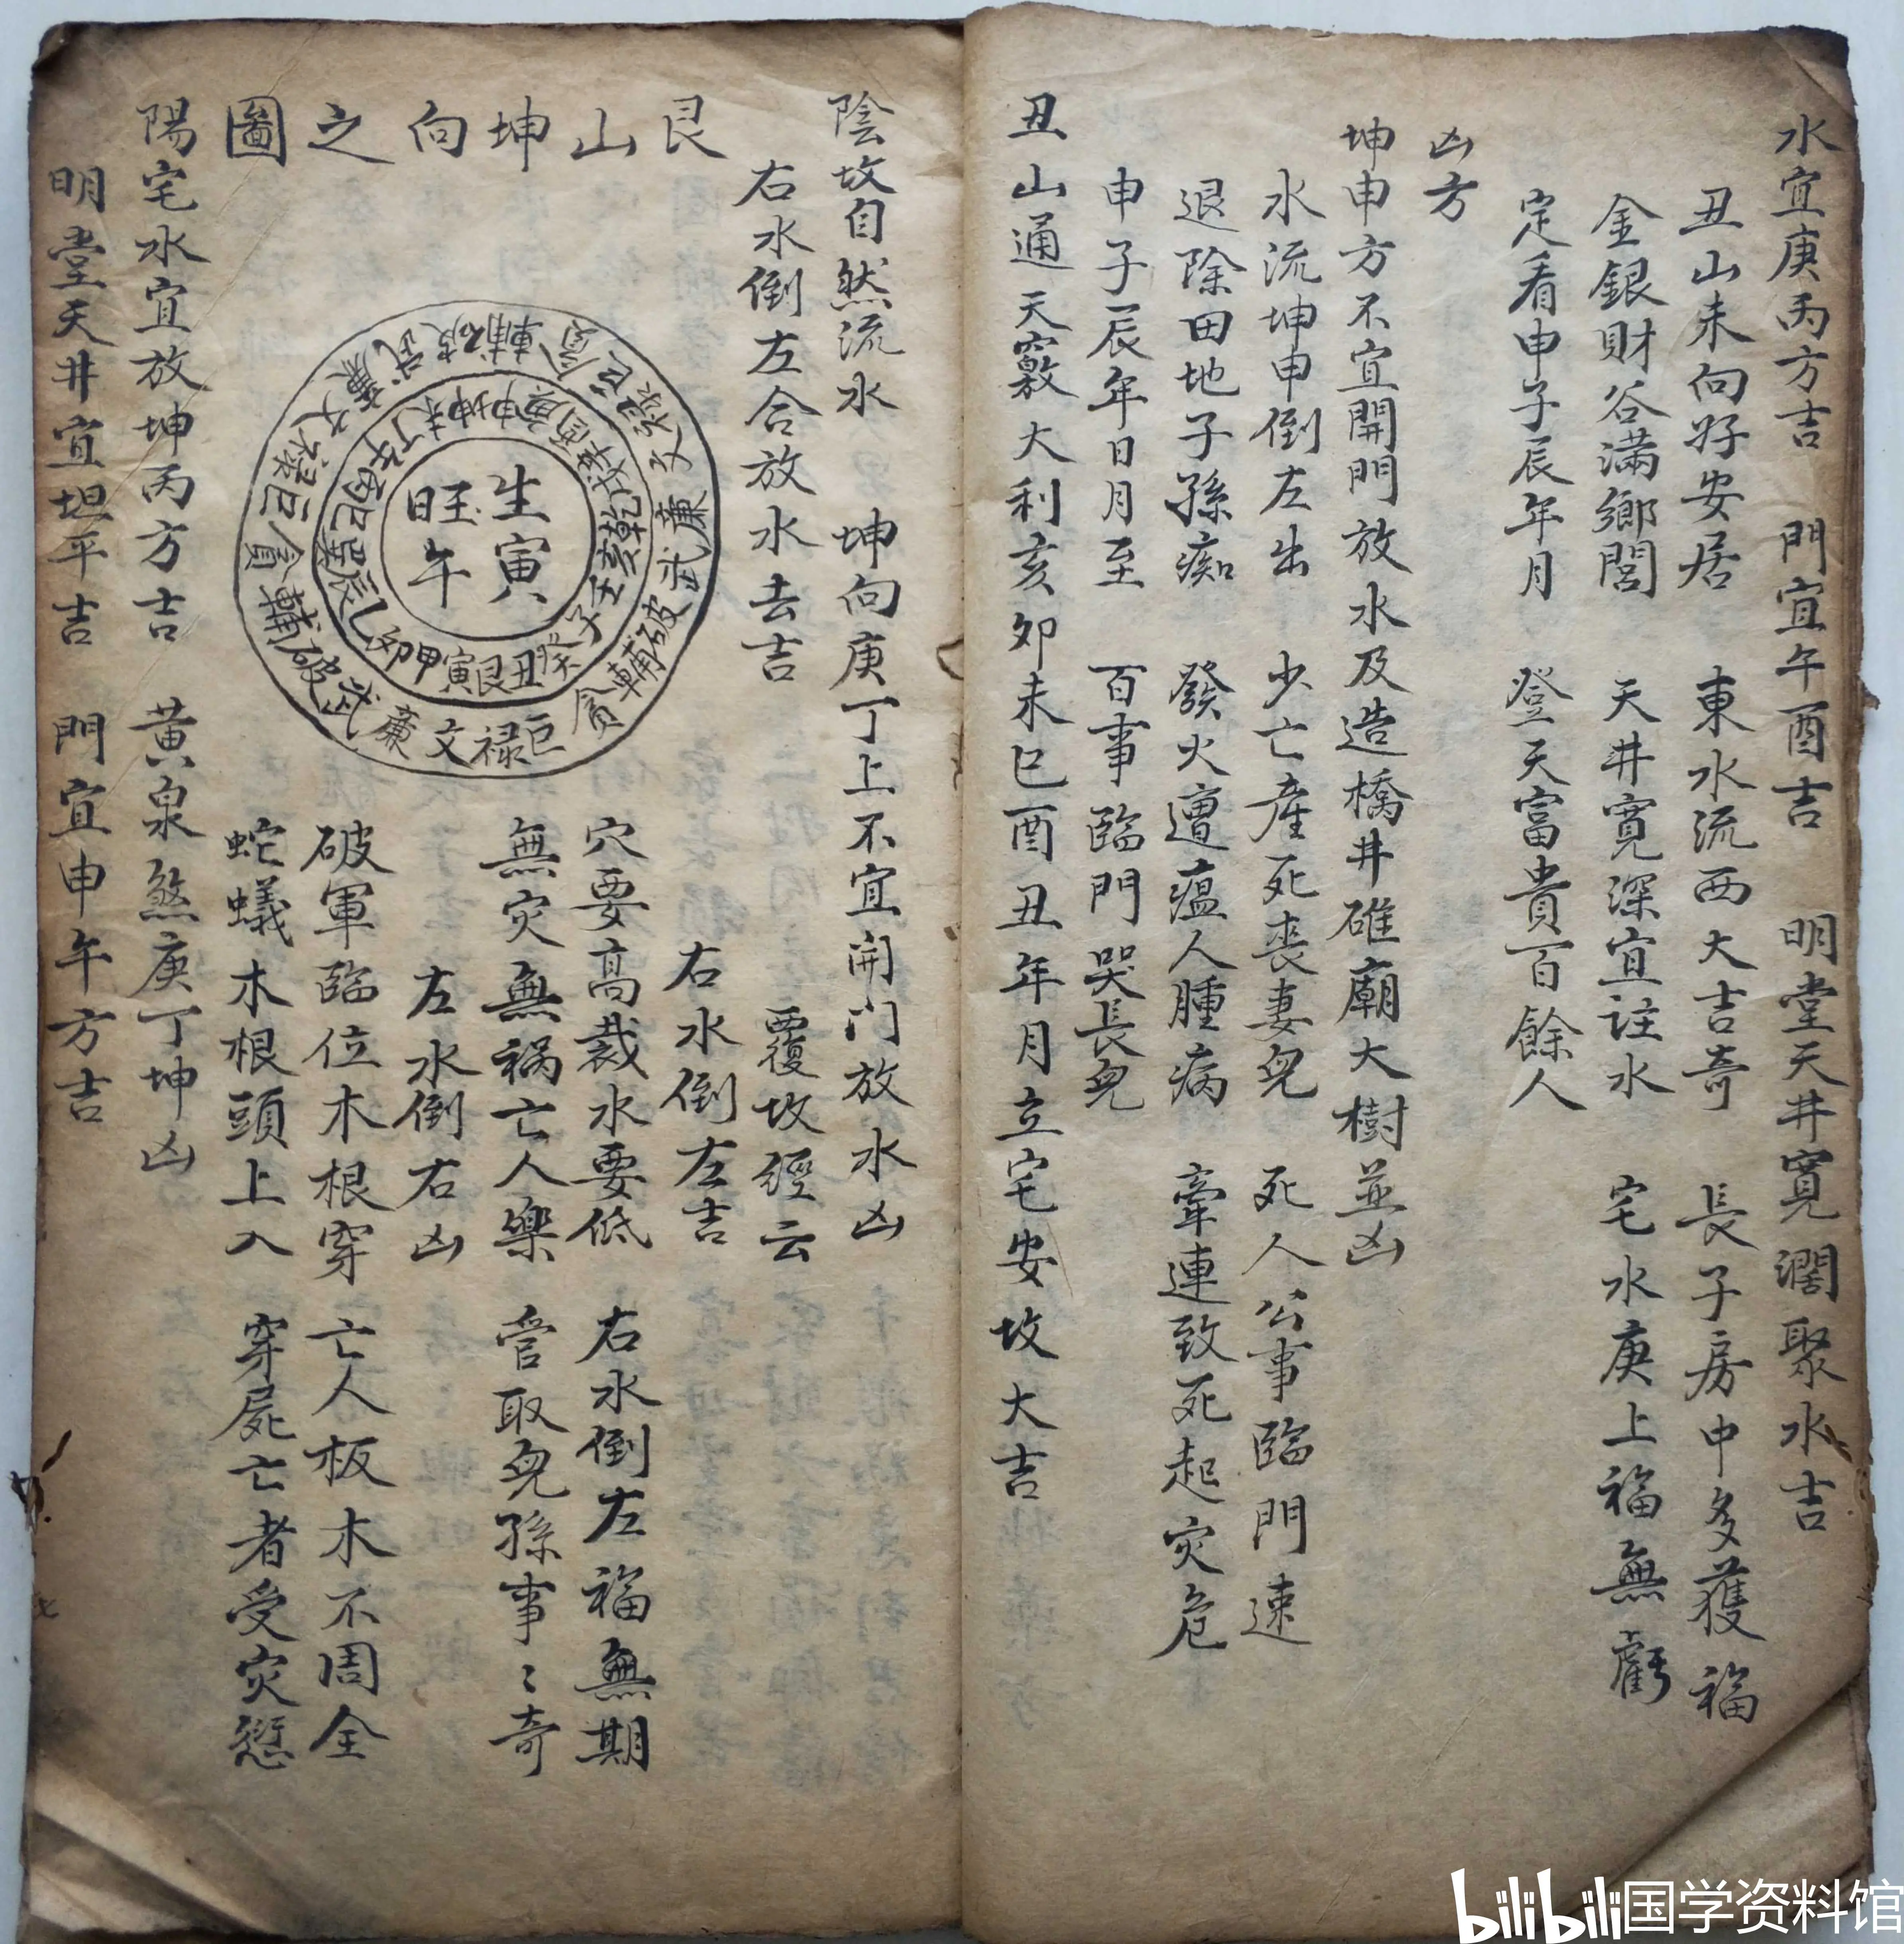 水宜庚丙方吉 門宜午酉吉 明堂天井寬濶聚水吉
丑山未向好安居 東水流西大吉奇 長子房中多獲福
金銀財谷滿鄉閭 天井寬深宜註水 宅水庚上福無虧
定看申子辰年月 登天富貴百餘人
凶方
坤申方不宜開門放水及造橋井碓廟大樹並凶
水流坤申倒左出 少亡產死喪妻兒 死人公事臨門速
退除田地子孫痴 發火遭瘟人腫病 牽連致死起灾危
申子辰年日月至 百事臨門哭長兒
丑山通天竅大利亥卯未巳酉丑年月立宅安坟大吉
陰坟自然流水 坤向庚丁上不宜開门放水凶
右水倒左合放水去吉 覆坟經云
艮山坤向之圖
右水倒左吉
穴要高裁水要低 右水倒左福無期
無灾無禍亡人樂 管取兒孫事〻奇
左水倒右凶
破軍臨位木根穿 亡人板木不周全
蛇蟻木根頭上入 穿屍亡者受灾愆
生寅
旺午
壬子癸丑艮寅甲卯乙辰巽巳丙午丁未坤申庚酉辛戌乾亥
破輔貪巨禄文廉武破輔貪巨禄文廉武破輔貪巨禄文廉武
陽宅水宜放坤丙方吉 黄泉煞庚丁坤凶
明堂天井宜坦平吉 門宜申午方吉
bilibili国学资料馆